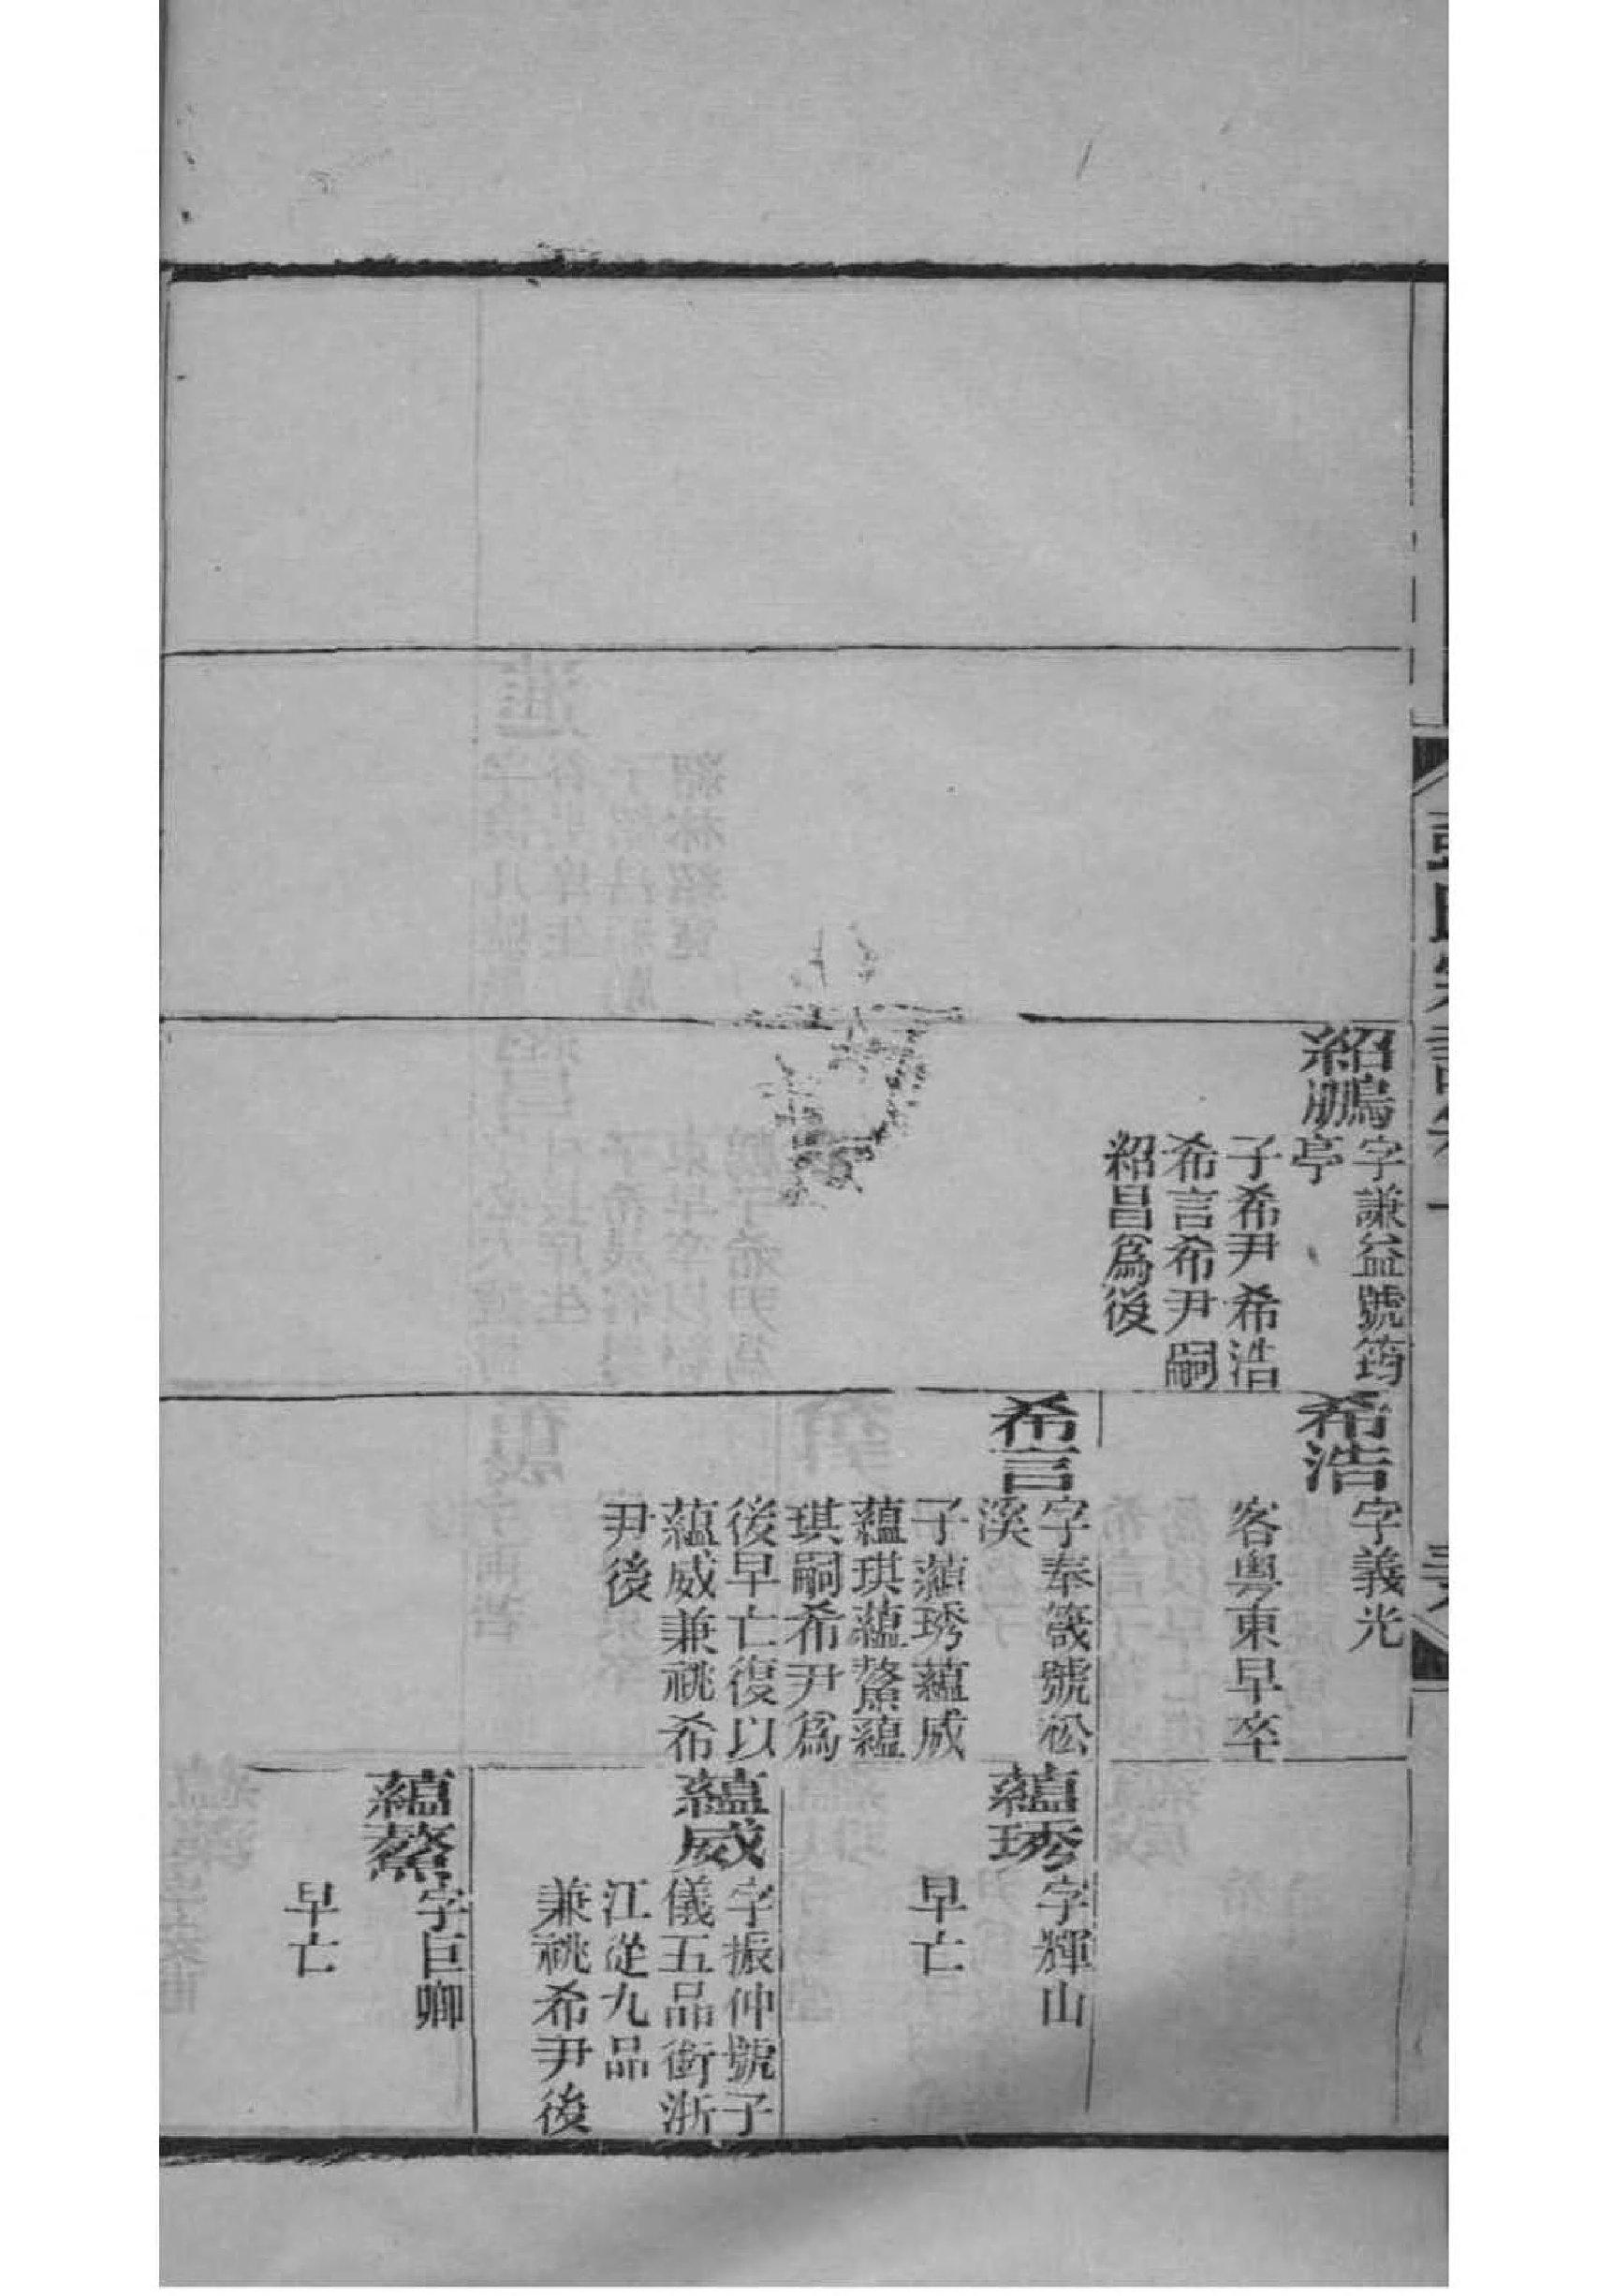 紹鵬
字謙益號筠
亭
子希尹希浩
希言希尹嗣
紹昌爲後
希浩
字義光
客粵東早卒
希言
字奉箴號松
溪
子蘊琇蘊威
蘊琪蘊鰲蘊
琪嗣希尹爲
後早亡復以
蘊威兼祧希
尹後
蘊琇
字輝山
早亡
蘊威
字振仲號子
儀五品銜浙
江從九品
兼祧希尹後
蘊鰲
字巨卿
早亡